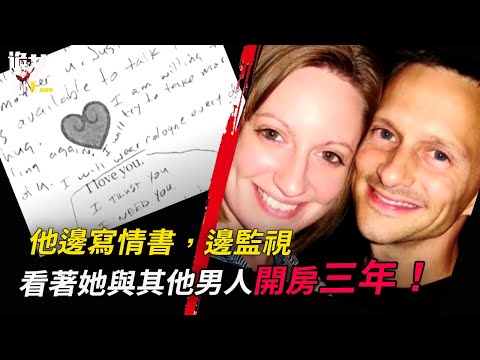 u. Just
available to talk
hug. I am willing
again. I will try to take
I will wear cologne every
I love you.
I TRUST YOU
I NEED YOU
他邊寫情書，邊監視
看著她與其他男人開房三年！